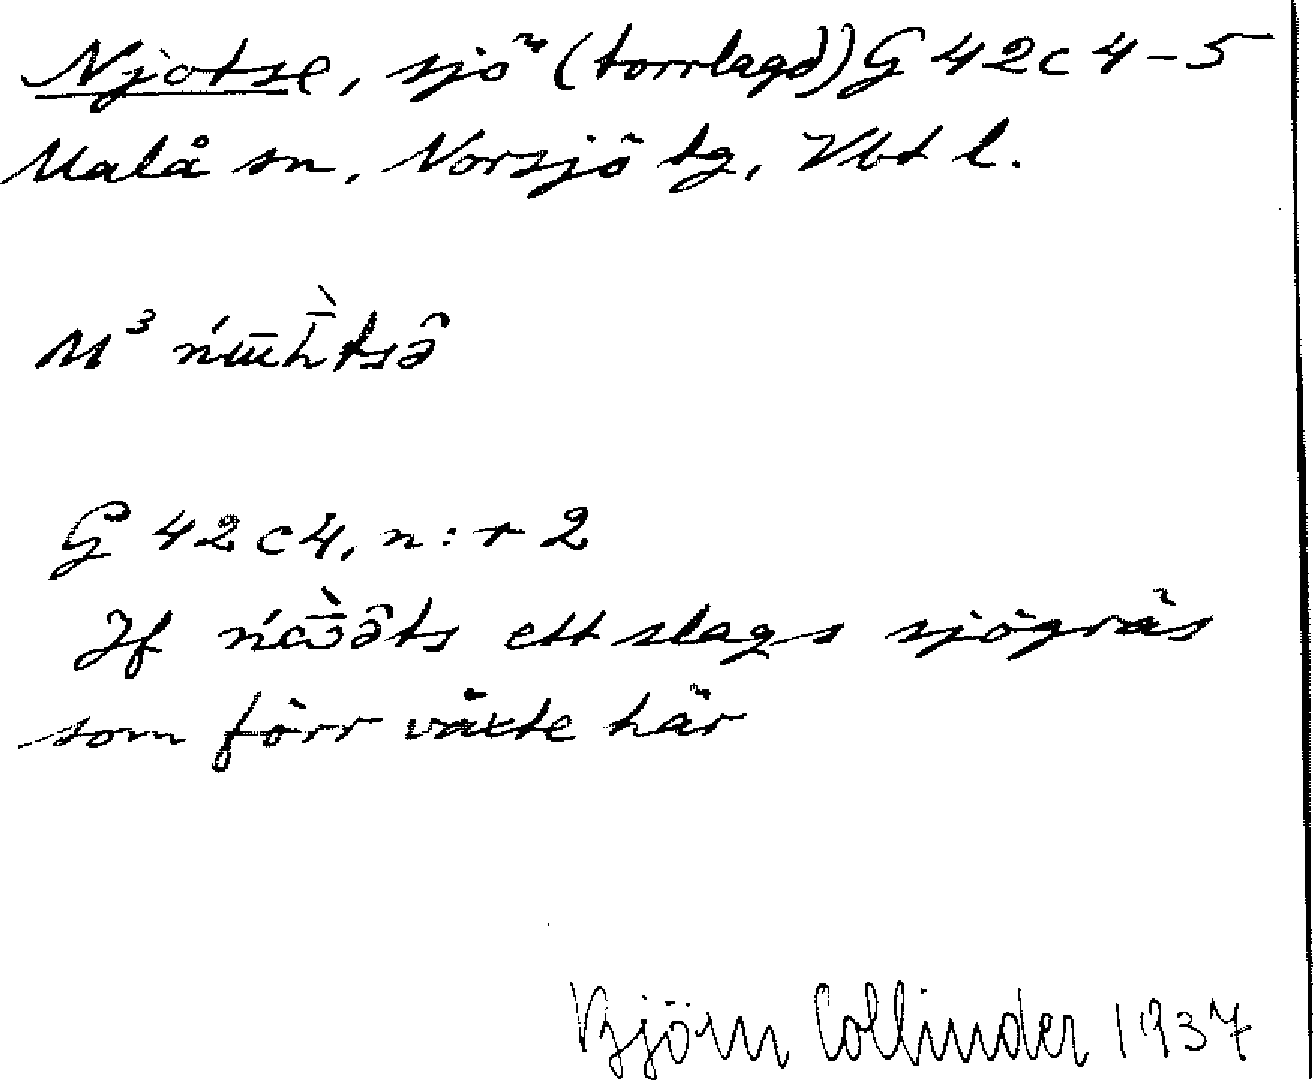 Njotse, sjö (torrlagd) G 42 c 4-5
Malå sn, Norsjö tg, Vbt l.
M³
G 42 c 4, n:r 2
Jf ett slags sjögräs
som förr växte här
Björn Collinder 1937